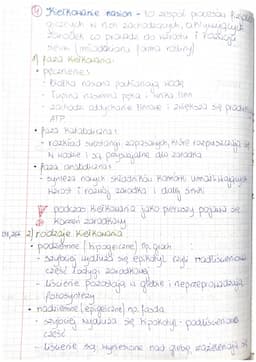 Kiełkowanie nasion - to zespół procesów
w nich zachodzących, aktywujących
zarodek co prowadzi do wzrostu i rozwoju
siewki (młodociana forma rośliny)
1) fazy kiełkowania:
• pęcznienie:
- białka nasiona pochłaniają wodę
- łupina nasienna pęka i wnika tlen
- zachodzi oddychanie tlenowe i zwiększa się
ATP
• faza kataboliczna:
- rozkład substancji zapasowych, które rozpuszczają się
w wodzie i są przyswajalne dla zarodka
• faza anaboliczna:
- synteza nowych składników komórki umożliwiających
wzrost i rozwój zarodka i dalej siewki
podczas kiełkowania jako pierwszy pojawia się
korzeń zarodkowy
2) rodzaje kiełkowania
• podziemne (hipogeiczne) np. groch
- szybciej wydłuża się epikotyl czyli nadliścieniowa
część łodygi zarodkowej
- liścienie pozostają w glebie i nie przeprowadzają
fotosyntezy
• nadziemne (epigeiczne) np. fasola
- szybciej wydłuża się hipokotyl - podliścieniowa
część
- liścienie są wyniesione nad glebę